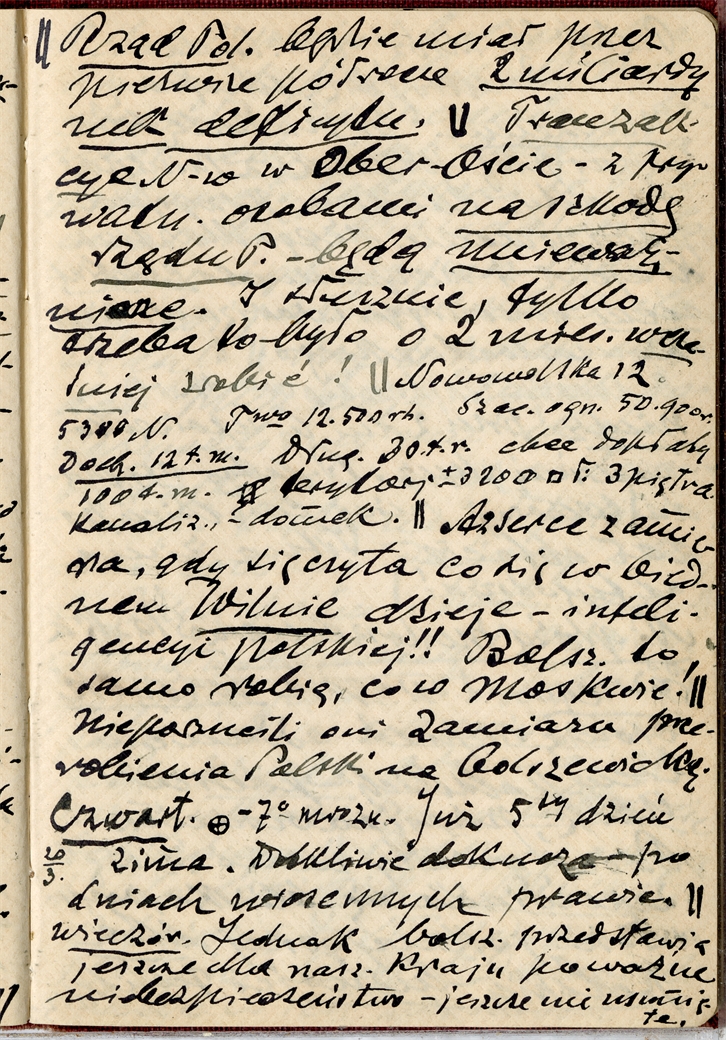 || Rząd Pol. będzie miał przez
pierwsze półrocze 2 miliardy
mk deficytu. || Tranzak-
cye N-ów w Ober-Oście - z pry-
watn. osobami na szkodę
rządu P. - będą unieważ-
nione. I słusznie, tylko
trzeba to było o 2 mies. wcze-
śniej zrobić! || Nowowolska 12
N. 12.500 rb. Szac. ogn. 50.900 r.
Doch. 12 t.m. Dług. 30 t.r. chce dopłaty
100 t.m. ±3200 □ ł: 3 piętra
kanaliz., - domek. || Aż serce zamie-
ra, gdy się czyta co się w bied-
nem Wilnie dzieje - inteli-
gencyi polskiej!! Bolsz. to
samo robią, co w Moskwie! ||
Nie porzucili oni zamiaru prze-
robienia Polski na bolszewicką.
Czwart. ⊕ -7° mrozu. Już 5ty dzień
zima. Dotkliwie dokucza - po
dniach wiosennych prawie. ||
wieczór. Jednak bolsz. przedstawia
jeszcze dla nasz. Kraju poważne
niebezpieczeństwo - jeszcze nie usunię-
te.